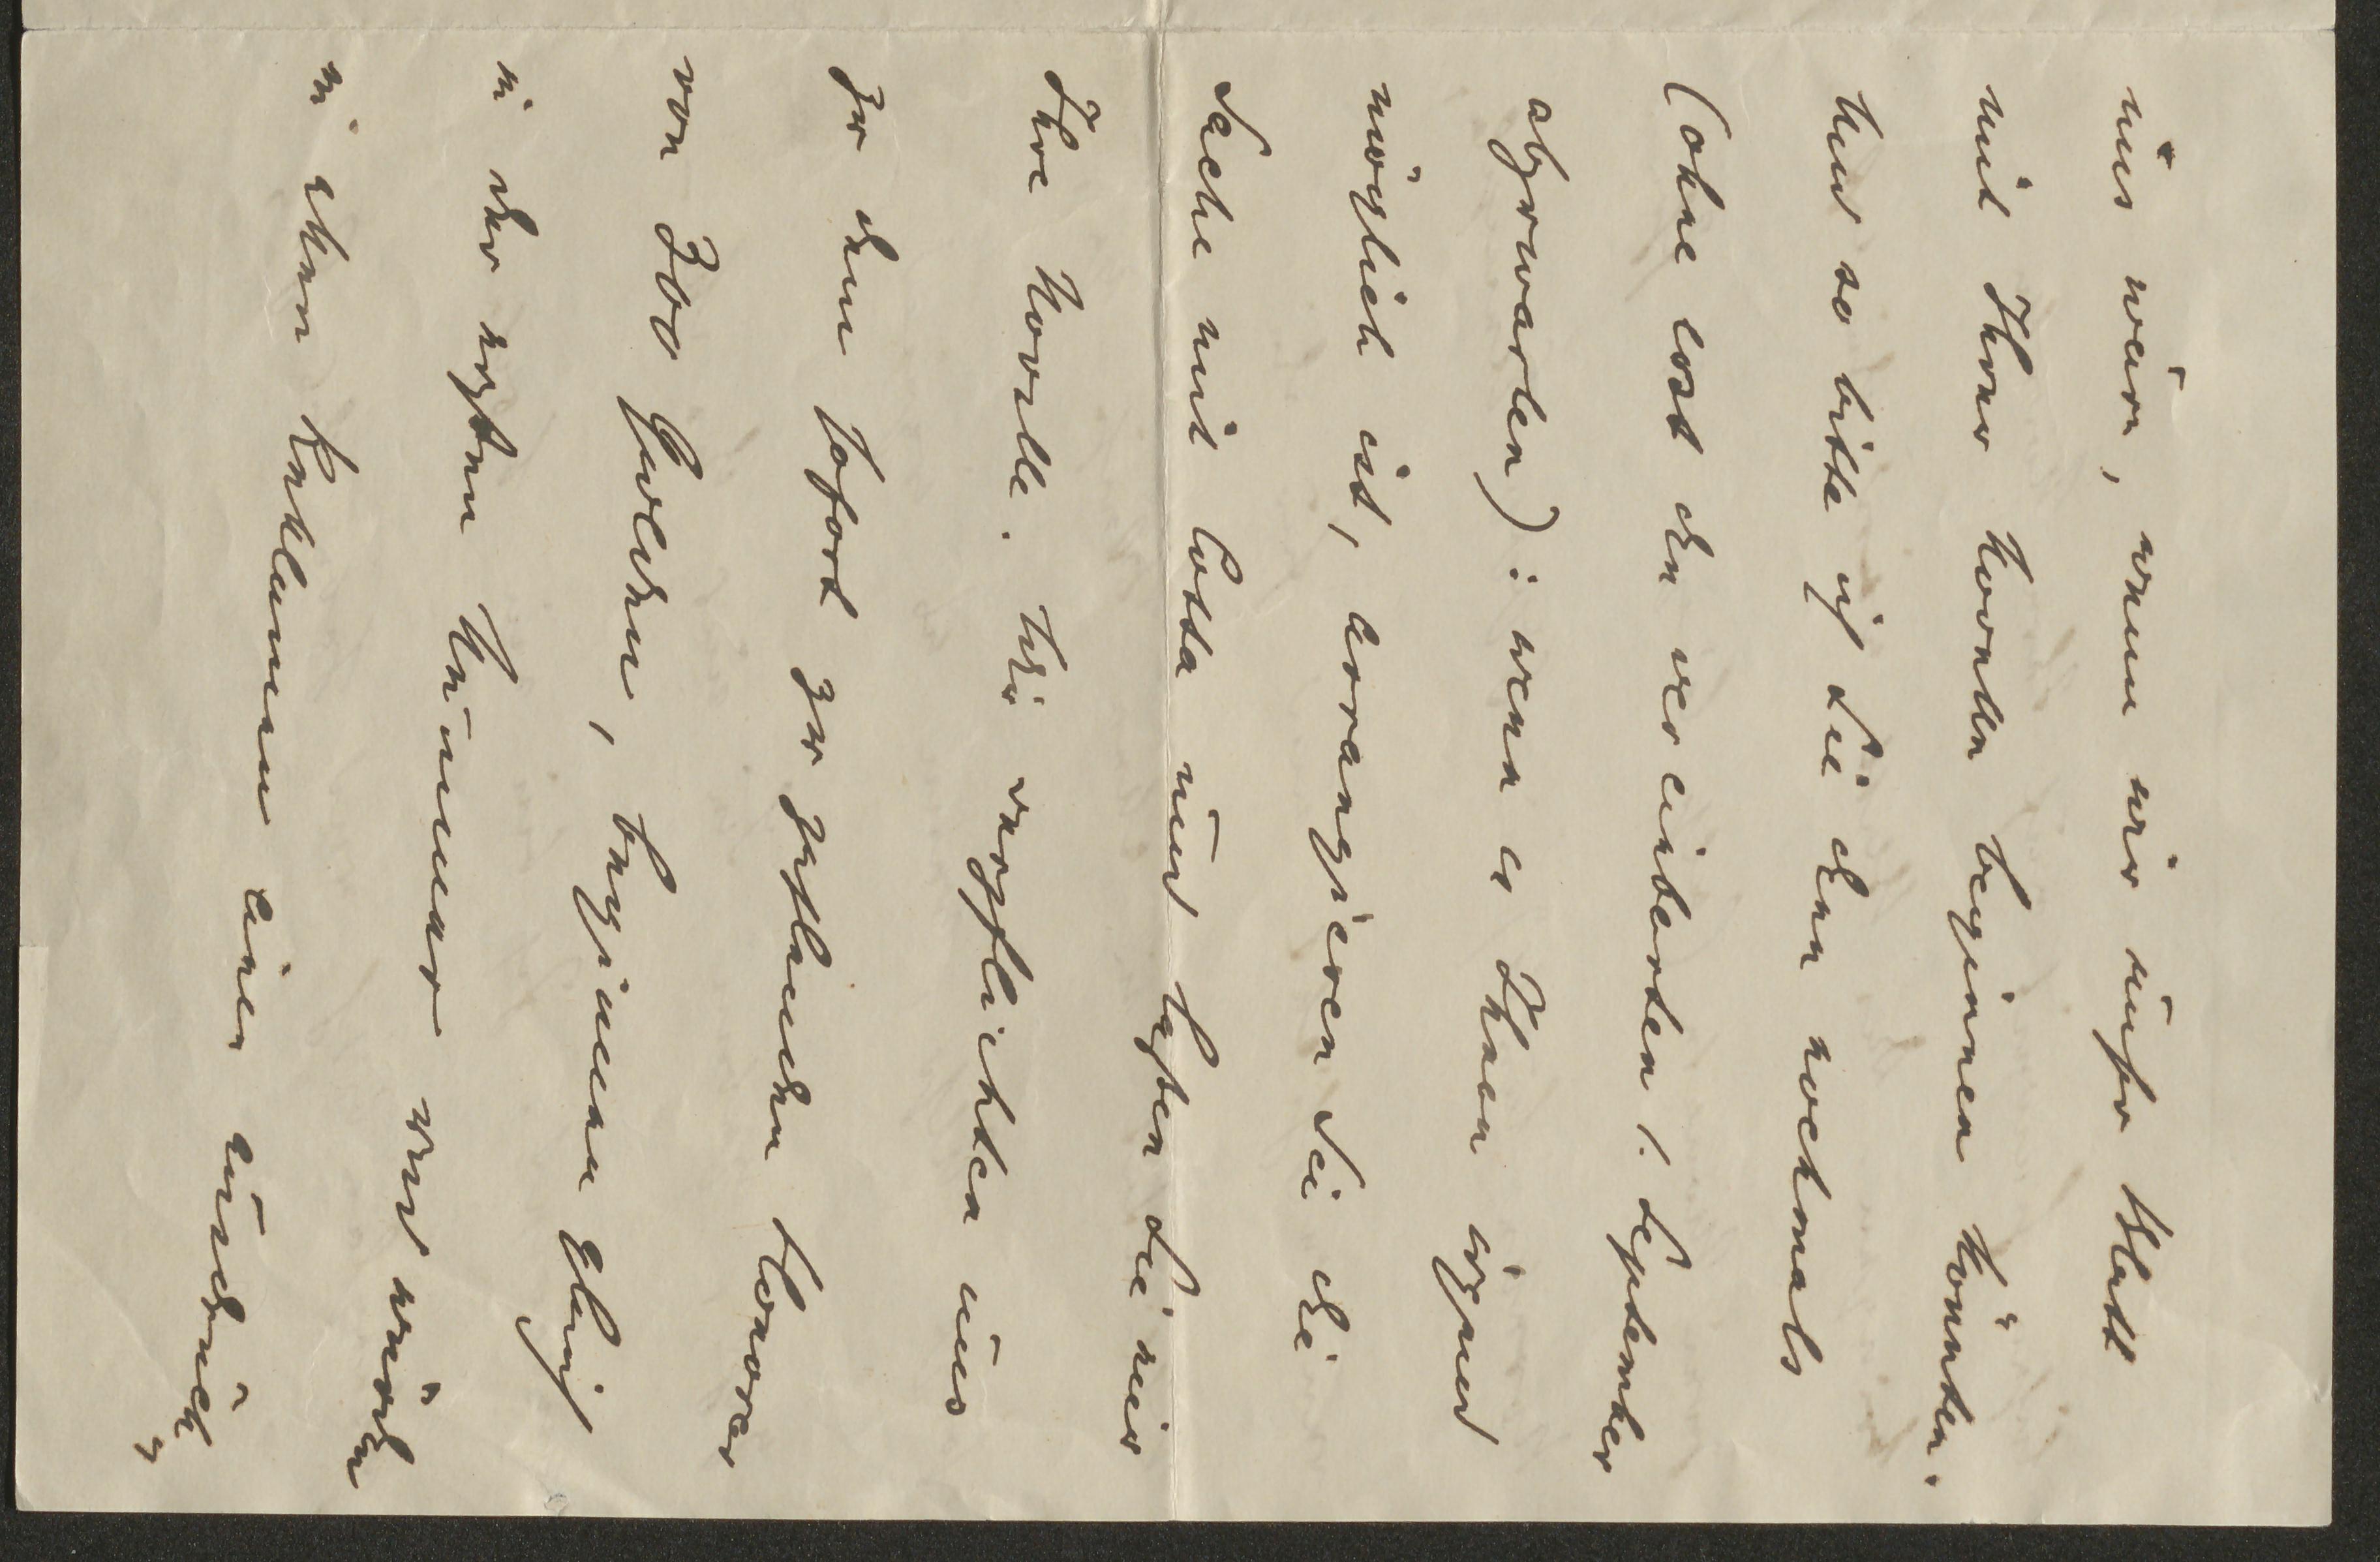 uns wäre, wenn wir unser Blatt
mit Ihrer Novelle beginnen könnten.
Und so bitte ich Sie denn nochmals
(ohne erst den vereinbarten 1. September
abzuwarten): wenn es Ihnen irgend
möglich ist, arrangieren Sie die
Sache mit Cotta und lassen Sie uns
Ihre Novelle. Wir verpflichten uns
zu dem sofort zu zahlenden Honorar
von 300 Gulden, beginnen gleich
in der ersten Nummer und würden
in allen Reklamen einen Eindruck,